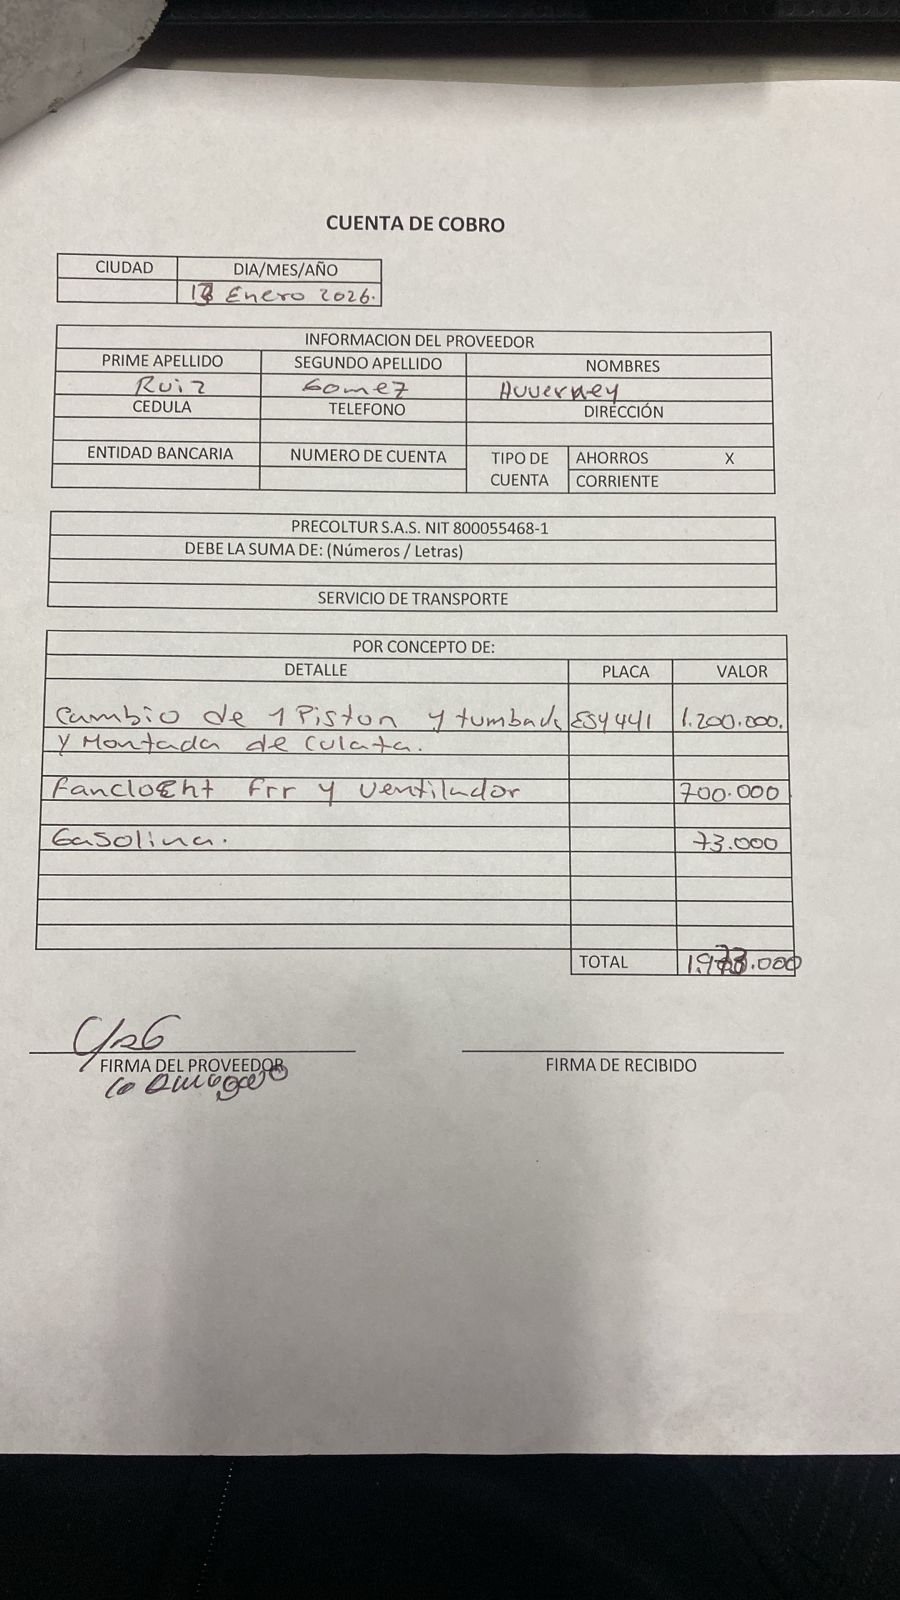 CUENTA DE COBRO
CIUDAD DIA/MES/AÑO
Enero 2026.
INFORMACION DEL PROVEEDOR
PRIME APELLIDO SEGUNDO APELLIDO NOMBRES
Ruiz Gomez
CEDULA TELEFONO DIRECCIÓN
ENTIDAD BANCARIA NUMERO DE CUENTA TIPO DE CUENTA AHORROS X
CORRIENTE
PRECOLTUR S.A.S. NIT 800055468-1
DEBE LA SUMA DE: (Números / Letras)
SERVICIO DE TRANSPORTE
POR CONCEPTO DE:
DETALLE PLACA VALOR
Cambio de 1 Piston y tumbada ESY441 1.200.000.
Y Montada de Culata.
Frr y Ventilador 700.000
Gasolina. 73.000
TOTAL 1.973.000
FIRMA DEL PROVEEDOR FIRMA DE RECIBIDO